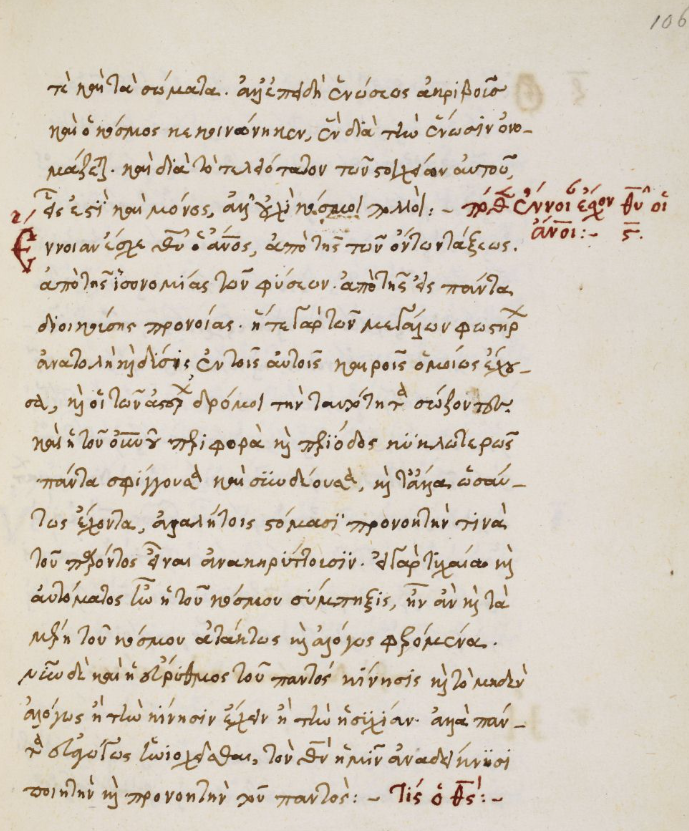 106
τὲ καὶ τὰ σώματα. ἀλλ' ἐπειδὴ ἑνώσεως ἀκριβοῦς
καὶ ὁ κόσμος κεκοινώνηκεν, ἓν διὰ τὴν ἕνωσιν ὀνο-
μάζεται. καὶ διὰ τὸ τελεώτατον τῶν στοιχείων αὐτοῦ,
εἷς ἐστὶ καὶ μόνος, ἀλλ' οὐχὶ κόσμοι πολλοί: - πόθεν ἔννοιαν ἔσχον θῦ οἱ
ἄνοι: - ϛ.
Ἔννοιαν ἔσχε θῦ ὁ ἄνος, ἀπὸ τῆς τῶν ὄντων τάξεως.
ἀπὸ τῆς ἰσονομίας τῶν φύσεων. ἀπὸ τῆς εἰς πάντα
διοικήσης προνοίας. ἥ τε γὰρ τῶν μεγάλων φωστήρων
ἀνατολὴ κὴ δύσις ἐν τοῖς αὐτοῖς καιροῖς ὁμοίως ἔχου-
σα, κὴ οἱ τῶν ἀστέρων δρόμοι τὴν ταυτότητα σώζοντες.
καὶ ἡ τοῦ οὐνοῦ περιφορὰ κὴ περίοδος κυκλωτερῶς
πάντα σφίγγουσα καὶ συνδέουσα, κὴ τἄλλα ὡσαύ-
τως ἔχοντα, ἀλαλήτοις στόμασι προνοητήν τινα
τοῦ παντὸς εἶναι ἀνακηρύττουσιν. εἰ γὰρ τυχαία κὴ
αὐτόματος ἦν ἡ τοῦ κόσμου σύμπηξις, ἦν ἂν κὴ τὰ
μέρη τοῦ κόσμου ἀτάκτως κὴ ἀλόγως φερόμενα.
νῦν δὲ καὶ ἡ εὔρυθμος τοῦ παντὸς κίνησις κὴ τὸ μηδὲν
ἀλόγως ἢ τὴν κίνησιν ἔχειν ἢ τὴν ἡσυχίαν. ἀλλὰ πάν-
τα εὐτάκτως ἡνιοχεῖσθαι, τὸν θν ἡμῖν ἀναδείκνυσι
ποιητὴν κὴ προνοητὴν τοῦ παντός: - Τίς ὁ θς: -